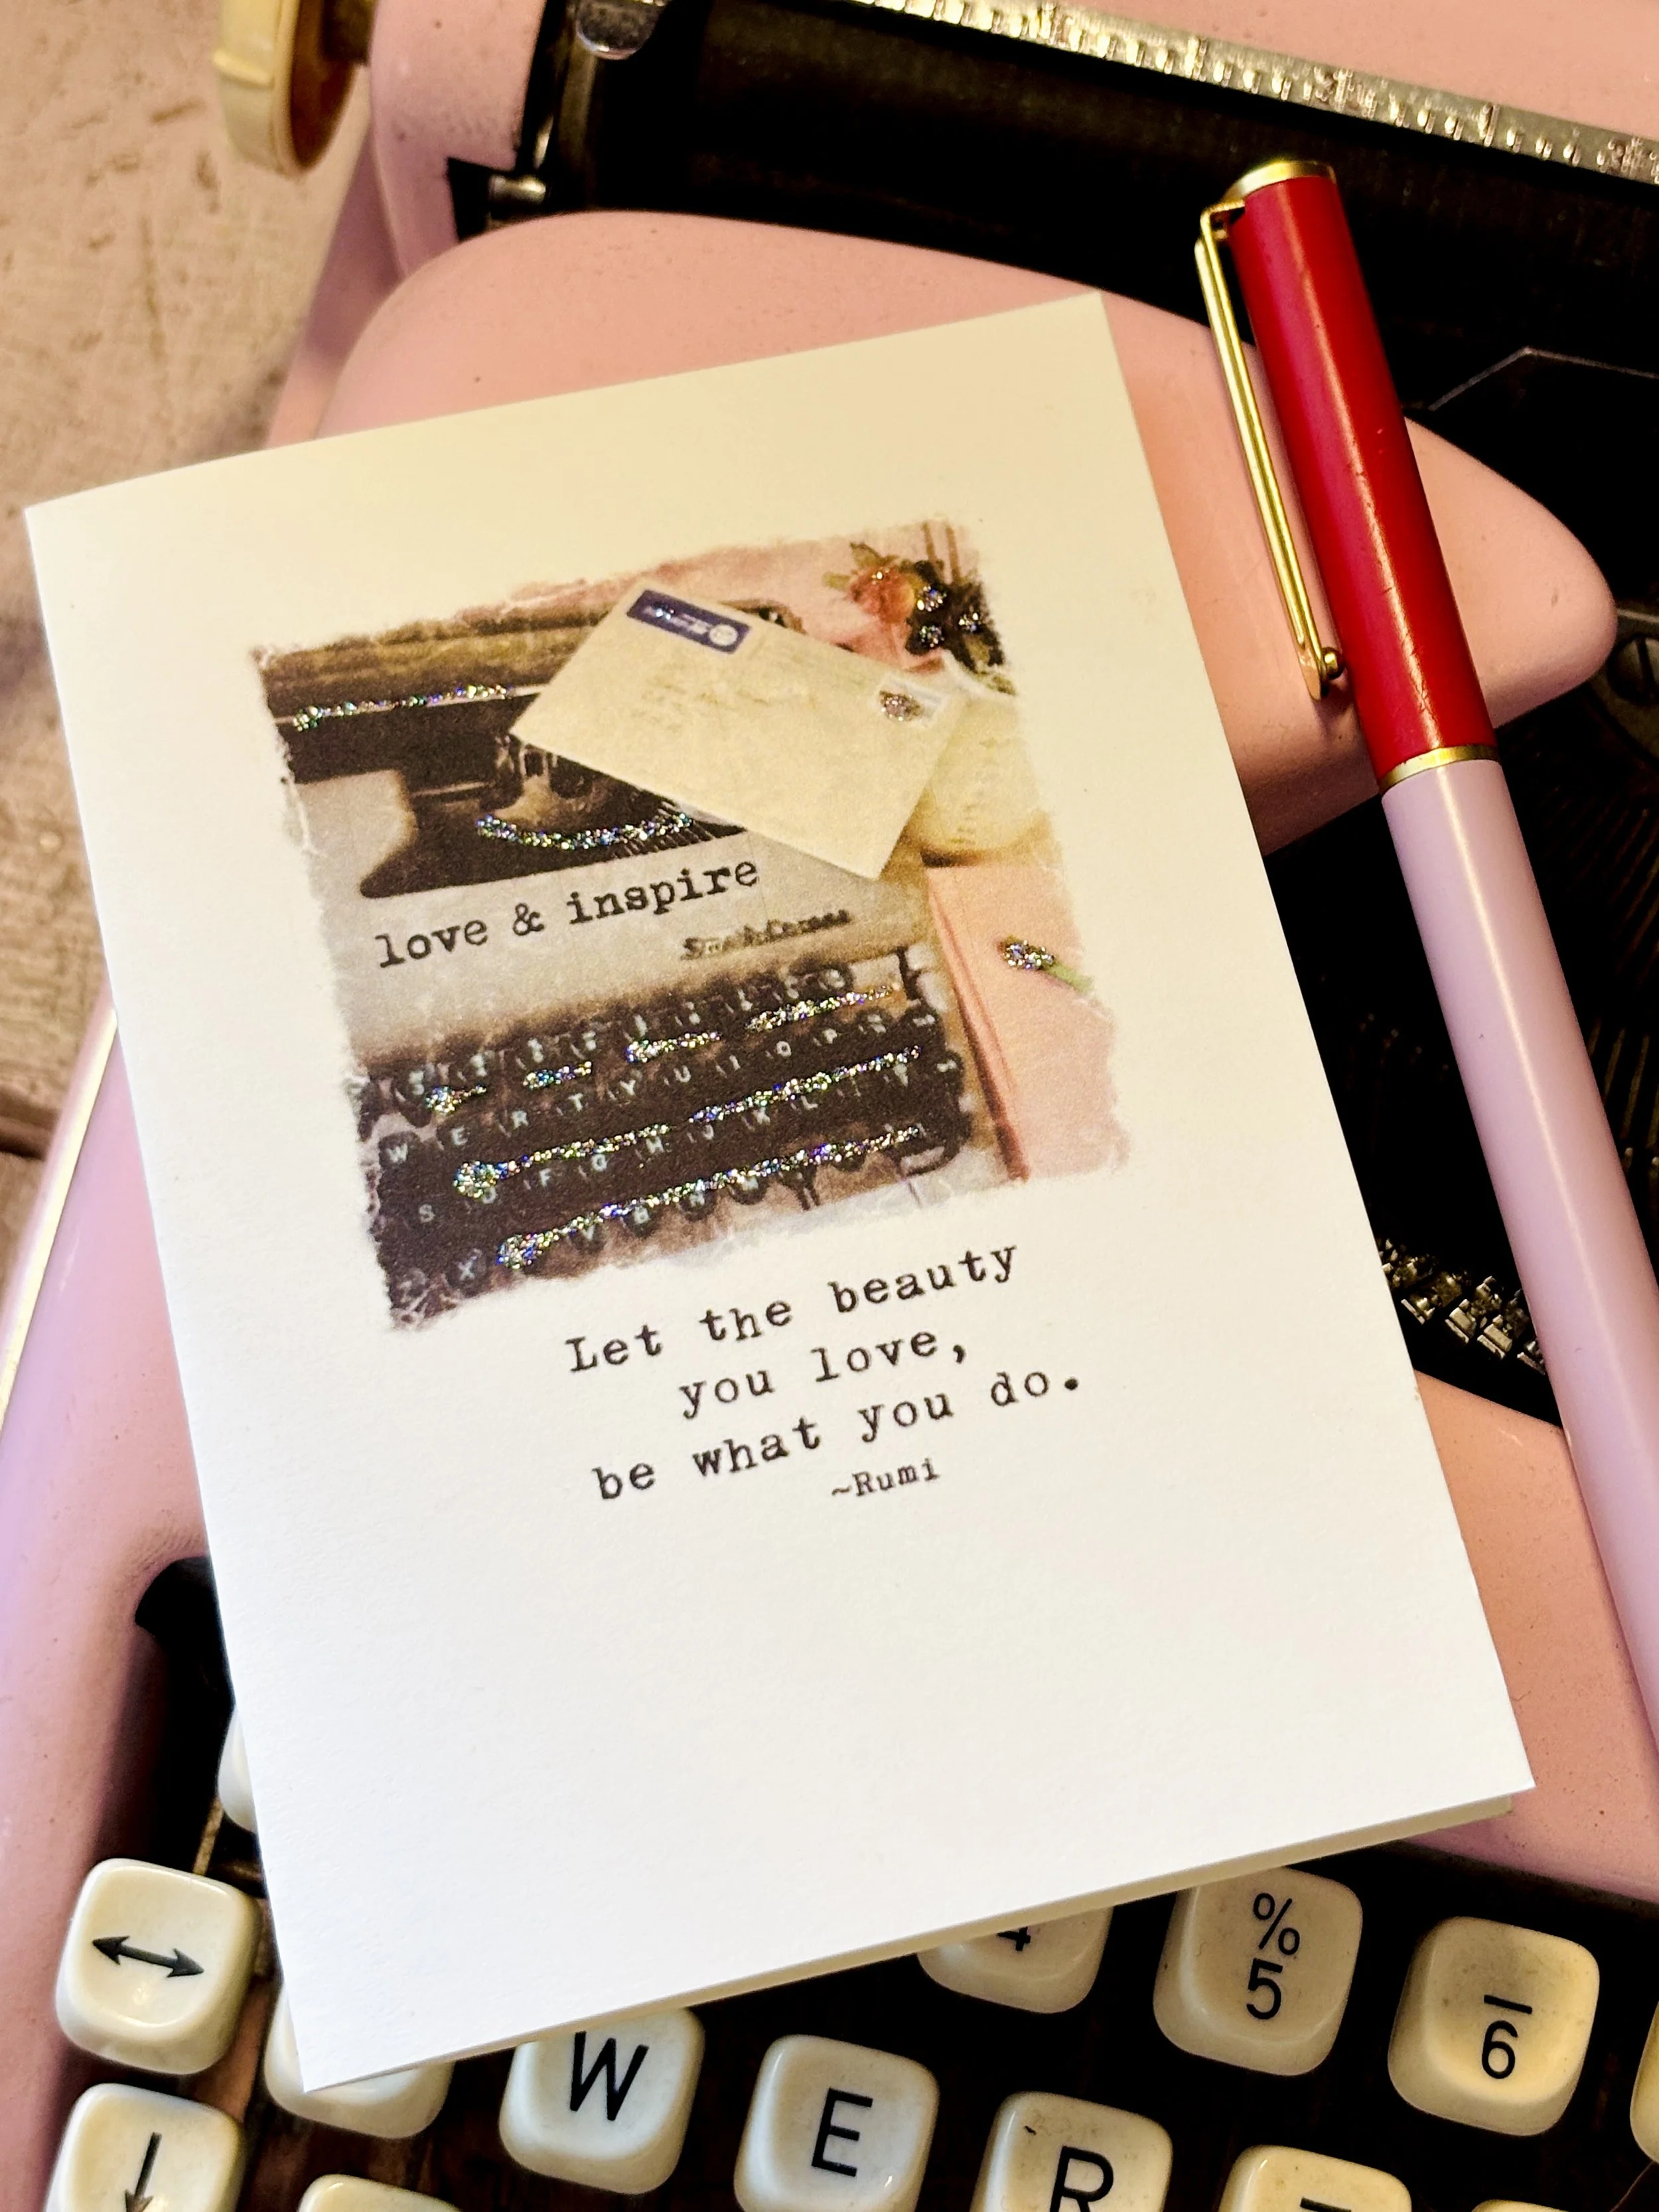 love & inspire
Smith-Corona
W E R T Y U I O P
S D F G H J K L
X V B N M
Let the beauty
you love,
be what you do.
~Rumi
↔
4
%
5
—
6
W
E
R
↓